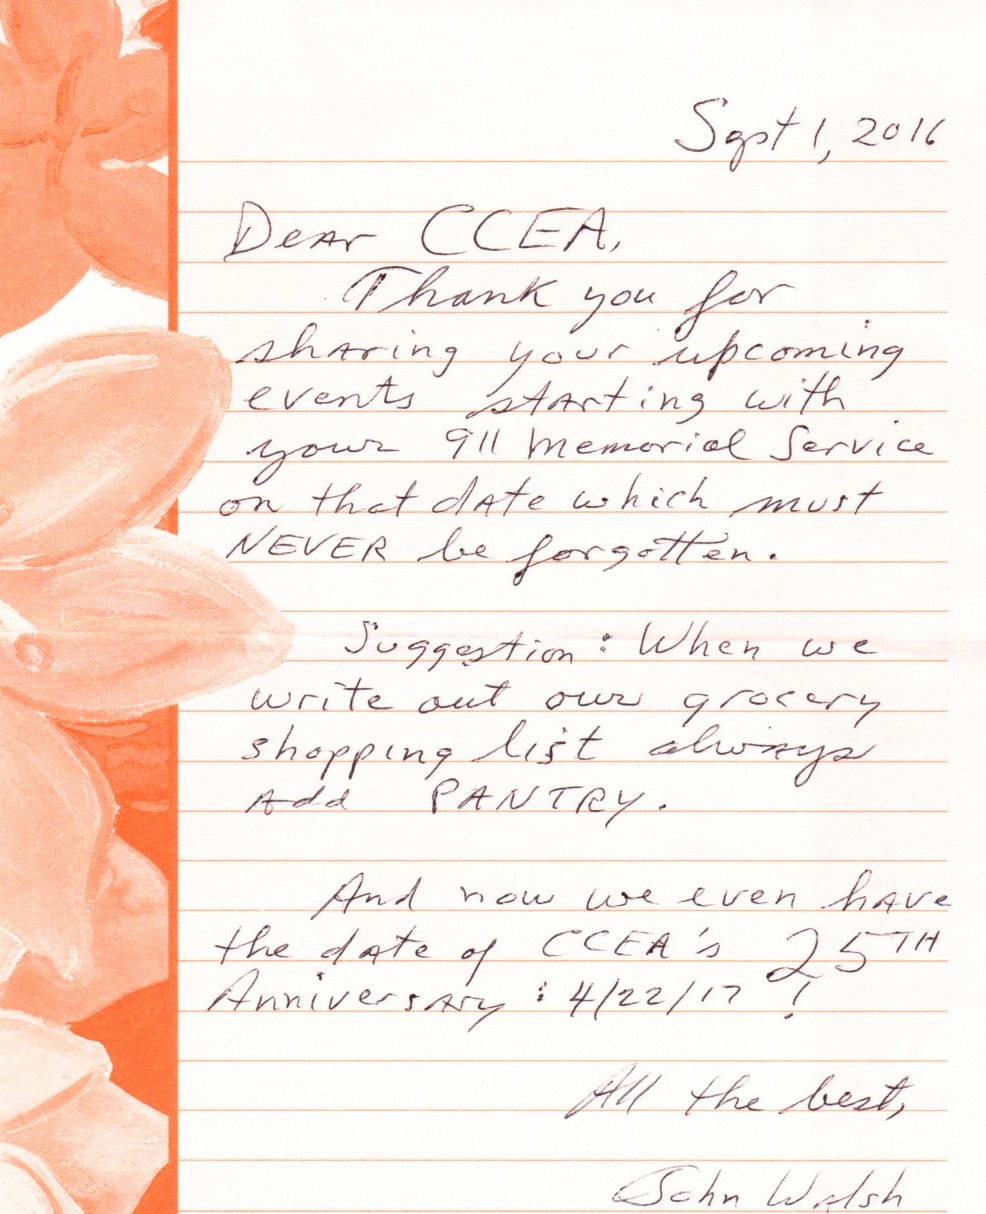 Sept 1, 2016
Dear CCEA,
Thank you for
sharing your upcoming
events starting with
your 911 Memorial Service
on that date which must
NEVER be forgotten.
Suggestion: When we
write out our grocery
shopping list always
add PANTRY.
And now we even have
the date of CCEA's 25TH
Anniversary: 4/22/17!
All the best,
John Walsh